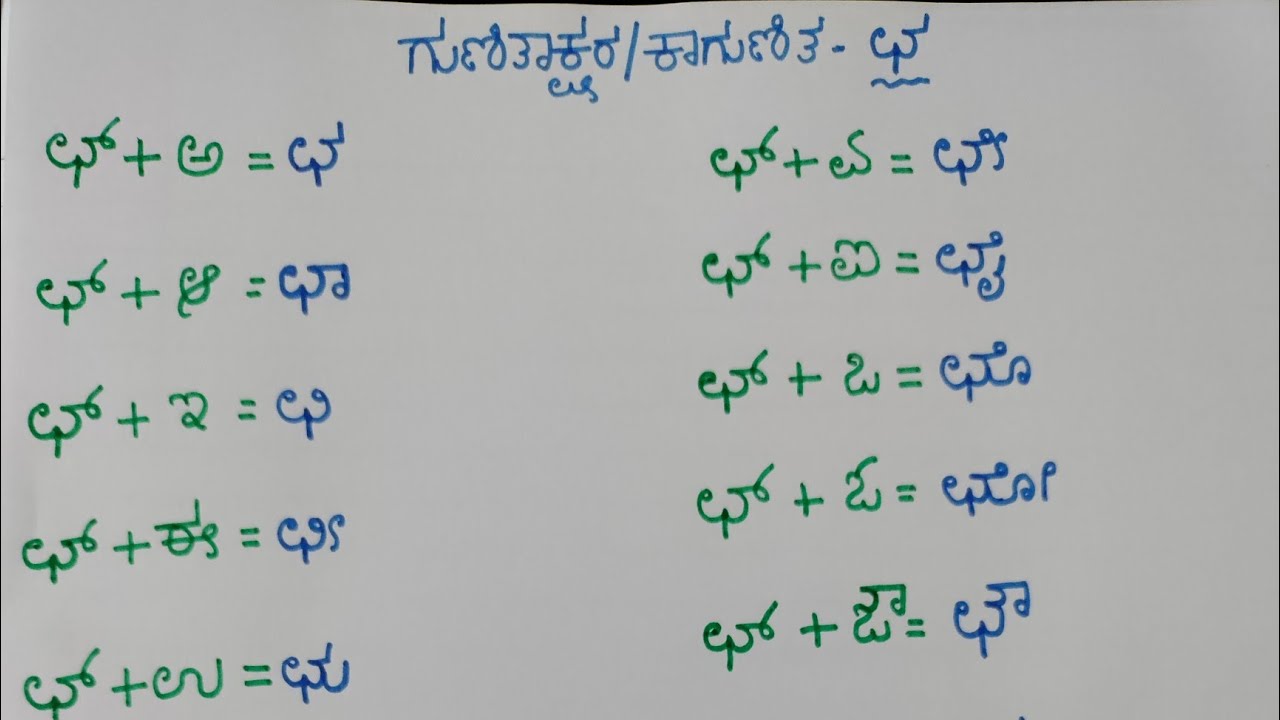 ಗುಣಿತಾಕ್ಷರ/ಕಾಗುಣಿತ - ಛ
ಛ್ + ಅ = ಛ
ಛ್ + ಆ = ಛಾ
ಛ್ + ಇ = ಛಿ
ಛ್ + ಈ = ಛೀ
ಛ್ + ಉ = ಛು
ಛ್ + ಎ = ಛೆ
ಛ್ + ಐ = ಛೈ
ಛ್ + ಒ = ಛೊ
ಛ್ + ಓ = ಛೋ
ಛ್ + ಔ = ಛೌ